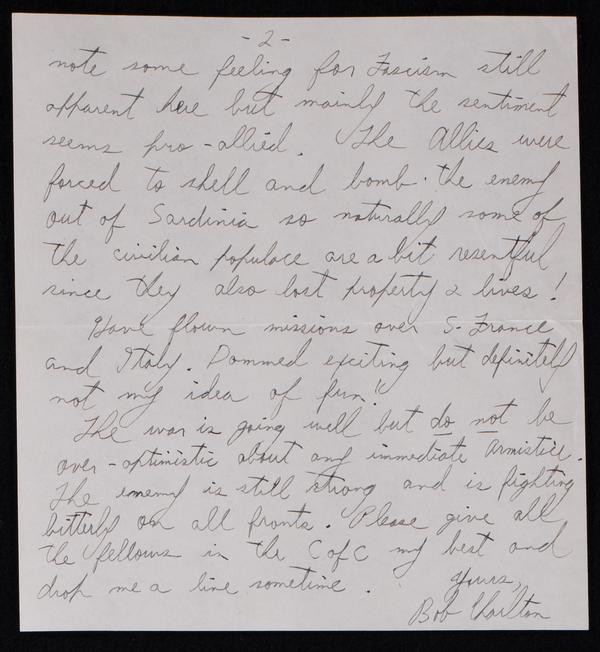 -2-
note some feeling for Fascism still
apparent here but mainly the sentiment
seems pro-allied. The Allies were
forced to shell and bomb the enemy
out of Sardinia so naturally some of
the civilian populace are a bit resentful
since they also lost property & lives!
Have flown missions over S. France
and Italy. Dammed exciting but definitely
not my idea of fun!!
The war is going well but do not be
over-optimistic about any immediate Armistice.
The enemy is still strong and is fighting
bitterly on all fronts. Please give all
the fellows in the C of C my best and
drop me a line sometime.
Yours,
Bob Charlton